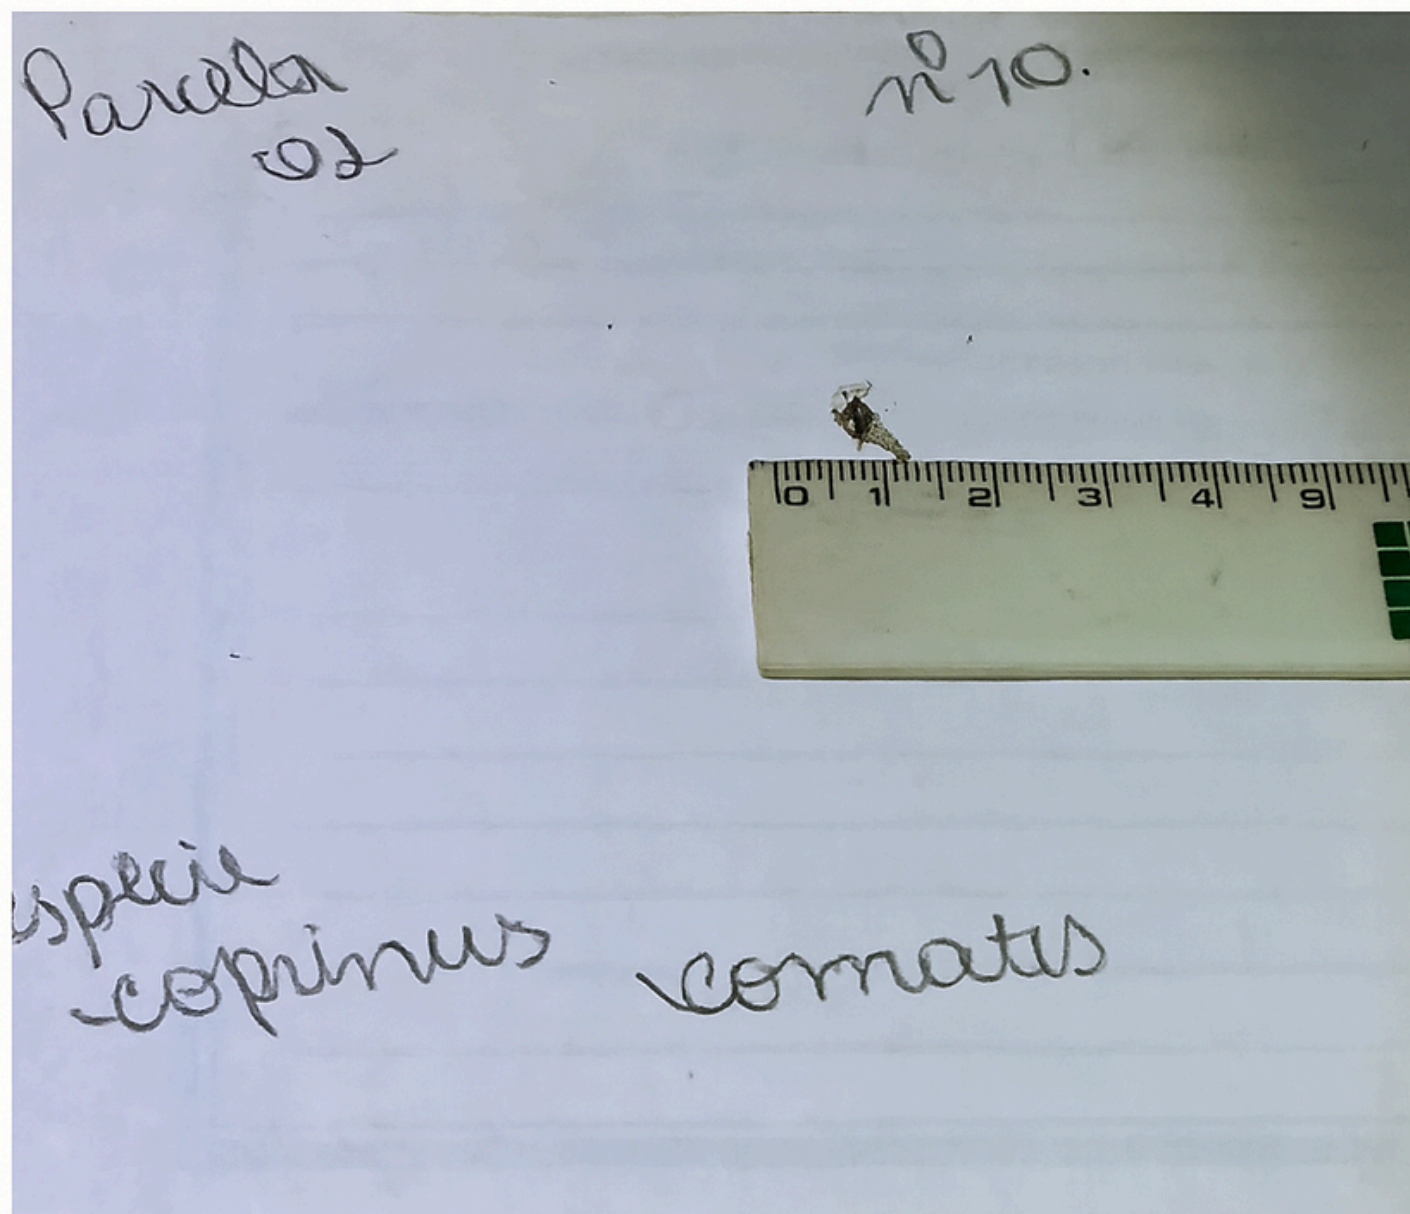 Parcela
02
nº 10.
0 1 2 3 4 9
espécie
coprinus comatus